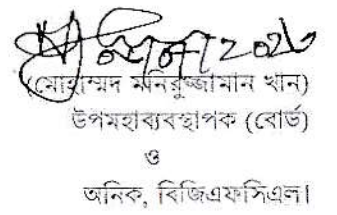 (মোহাম্মদ মনিরুজ্জামান খান)
উপমহাব্যবস্থাপক (বোর্ড)
ও
অনিক, বিজিএফসিএল।